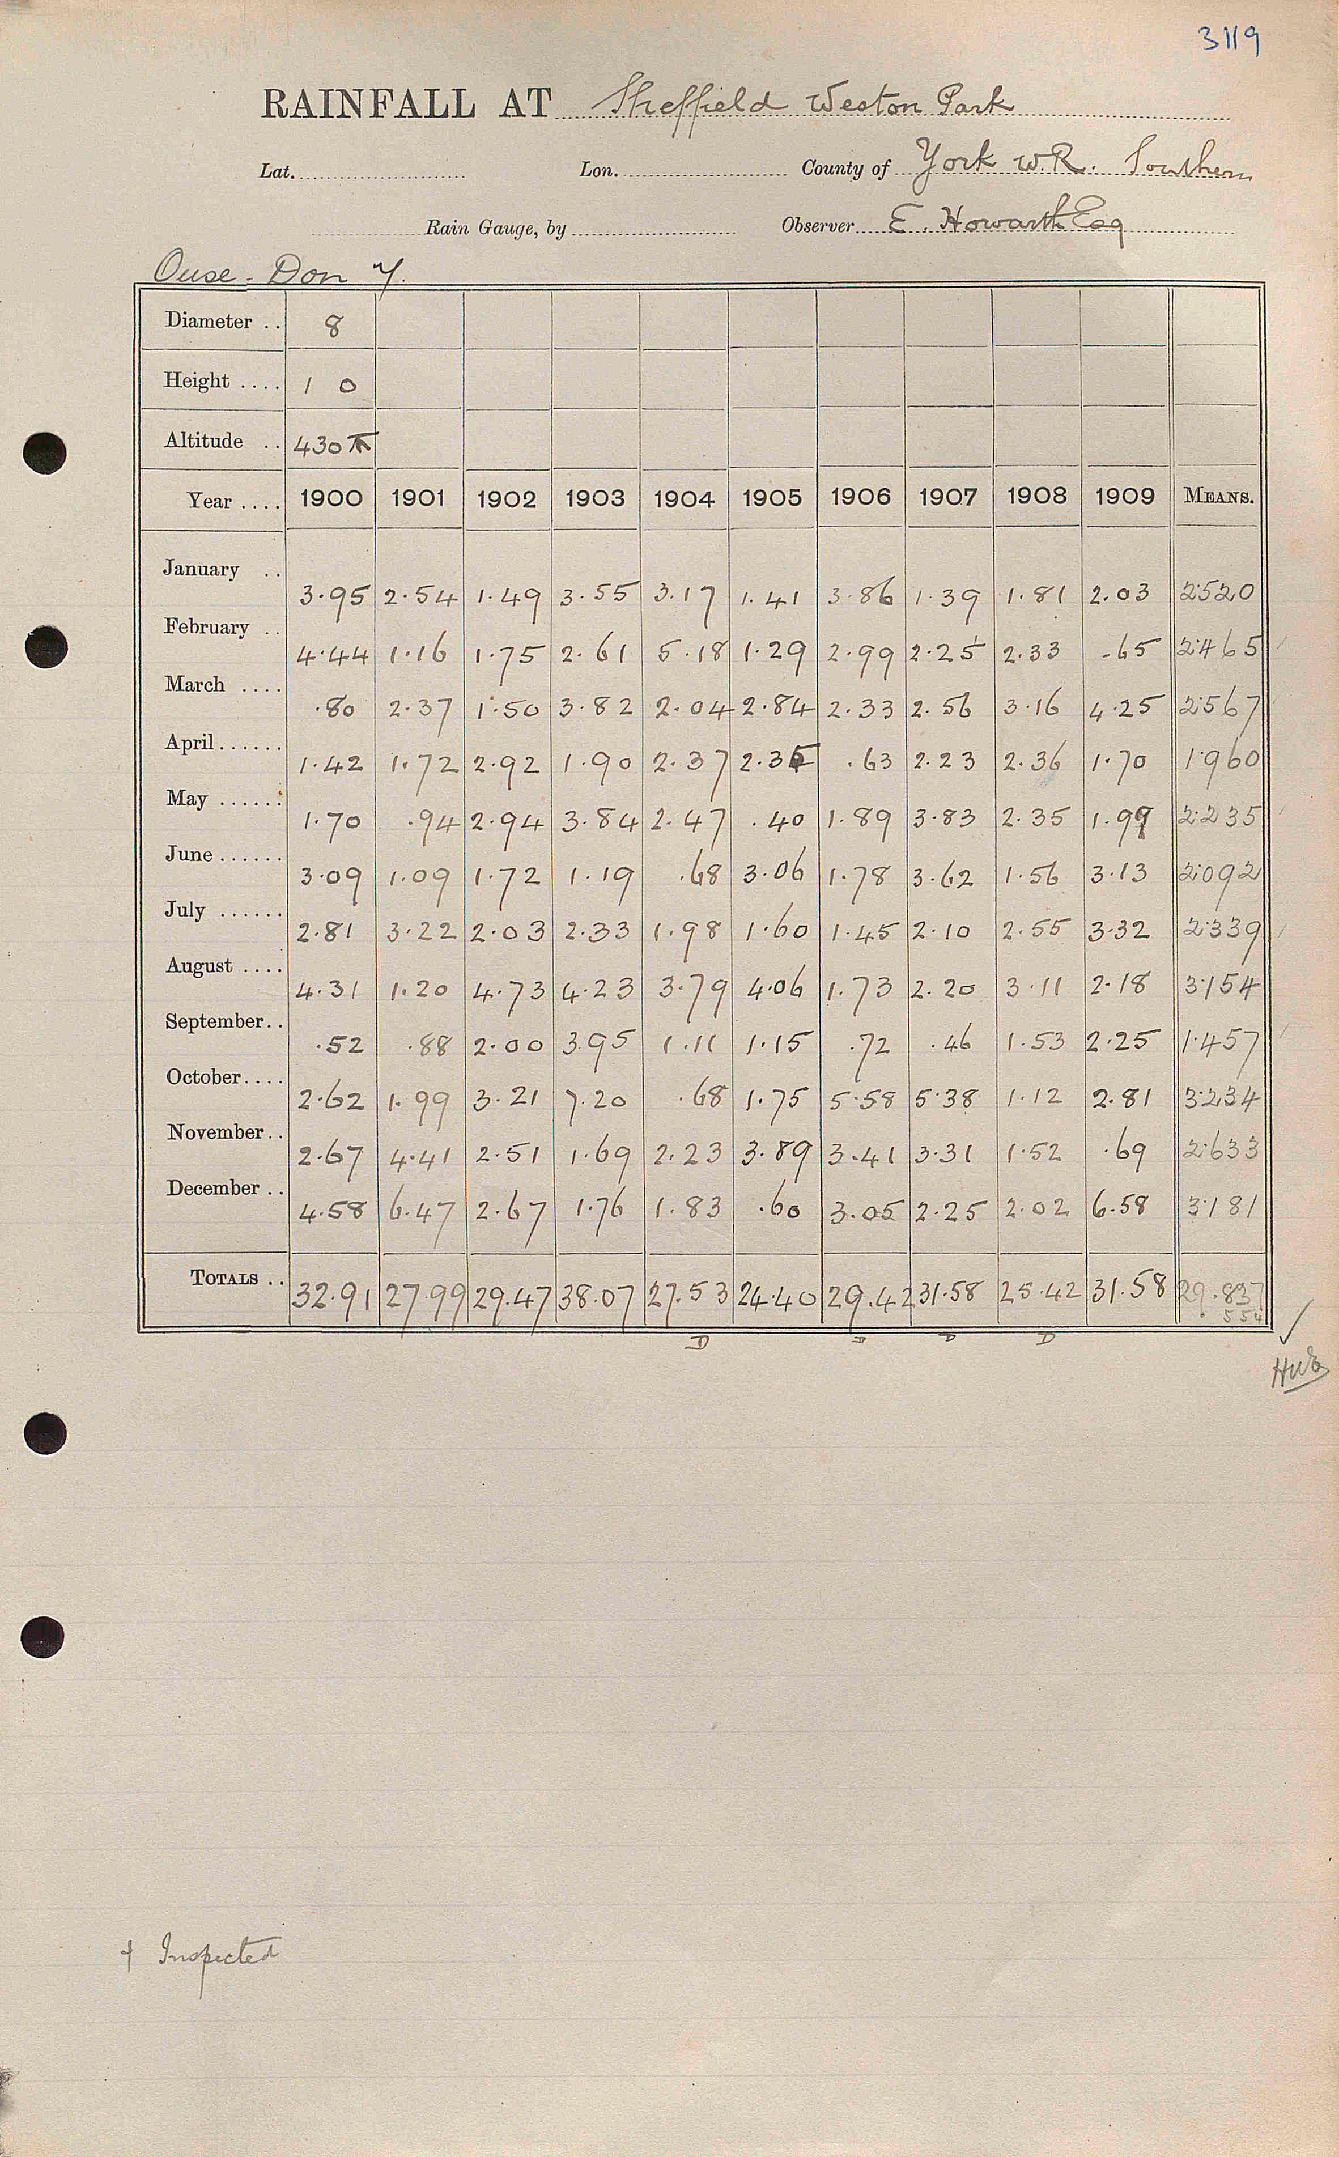 3119
RAINFALL AT Sheffield Weston Park
Lat. Lon. County of York W.R. Southern
Rain Gauge, by Observer E. Howarth Esq
Ouse - Don
Diameter .. 8
Height .... 1 0
Altitude .. 430
Year .... 1900 1901 1902 1903 1904 1905 1906 1907 1908 1909 MEANS.
January .. 3.95 2.54 1.49 3.55 3.17 1.41 3.86 1.39 1.81 2.03 2.520
February .. 4.44 1.16 1.75 2.61 5.18 1.29 2.99 2.25 2.33 .65 2.465
March .... .80 2.37 1.50 3.82 2.04 2.84 2.33 2.56 3.16 4.25 2.567
April ...... 1.42 1.72 2.92 1.90 2.37 2.35 .63 2.23 2.36 1.70 1.960
May ...... 1.70 .94 2.94 3.84 2.47 .40 1.89 3.83 2.35 1.99 2.235
June ...... 3.09 1.09 1.72 1.19 .68 3.06 1.78 3.62 1.56 3.13 2.092
July ...... 2.81 3.22 2.03 2.33 1.98 1.60 1.45 2.10 2.55 3.32 2.339
August .... 4.31 1.20 4.73 4.23 3.79 4.06 1.73 2.20 3.11 2.18 3.154
September.. .52 .88 2.00 3.95 1.11 1.15 .72 .46 1.53 2.25 1.457
October.... 2.62 1.99 3.21 7.20 .68 1.75 5.58 5.38 1.12 2.81 3.234
November.. 2.67 4.41 2.51 1.69 2.23 3.89 3.41 3.31 1.52 .69 2.633
December .. 4.58 6.47 2.67 1.76 1.83 .60 3.05 2.25 2.02 6.58 3.181
TOTALS .. 32.91 27.99 29.47 38.07 27.53 24.40 29.42 31.58 25.42 31.58 29.837
D D D
† Inspected